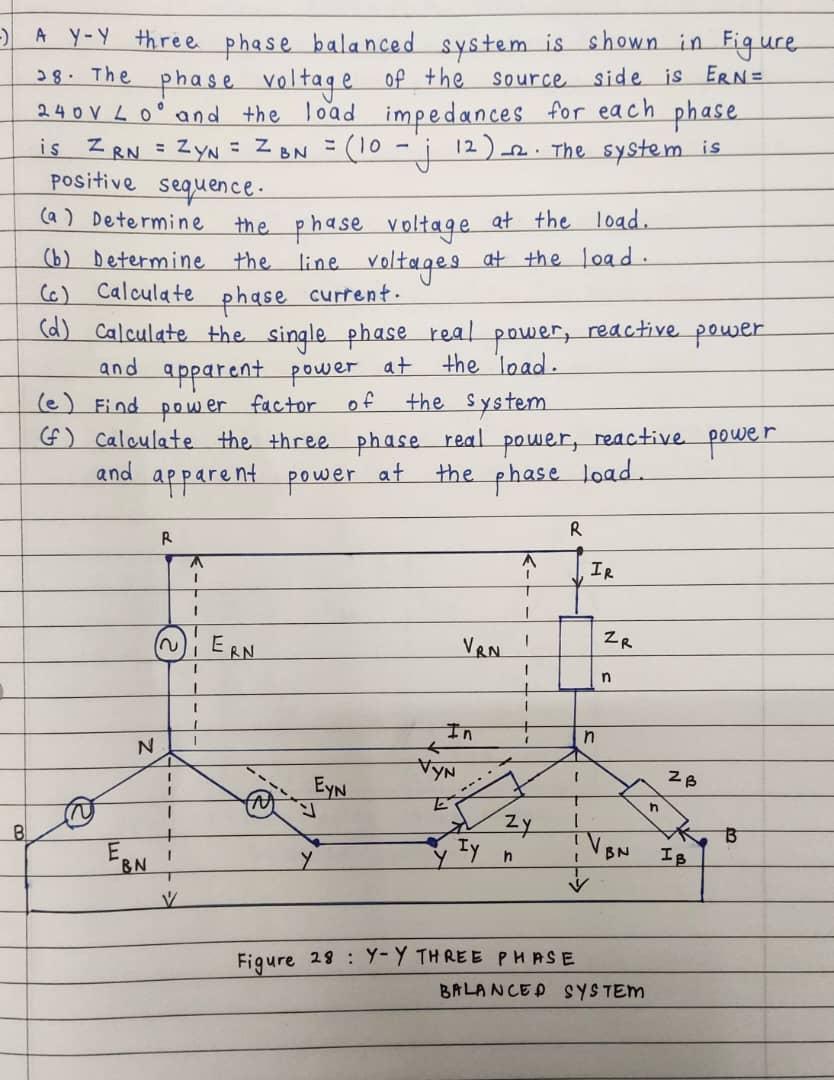 A Y-Y three phase balanced system is shown in Figure
28. The phase voltage of the source side is ERN=
240V∠0° and the load impedances for each phase
is ZRN = ZYN = ZBN = (10 - j 12)Ω. The system is
positive sequence.
(a) Determine the phase voltage at the load.
(b) Determine the line voltages at the load.
(c) Calculate phase current.
(d) Calculate the single phase real power, reactive power
and apparent power at the load.
(e) Find power factor of the system
(f) Calculate the three phase real power, reactive power
and apparent power at the phase load.
R
R
IR
ERN
VRN
ZR
n
In
N
n
VYN
EYN
ZB
n
B
ZY
B
EBN
Y
Y
IY
n
VBN
IB
Figure 28 : Y-Y THREE PHASE
BALANCED SYSTEM